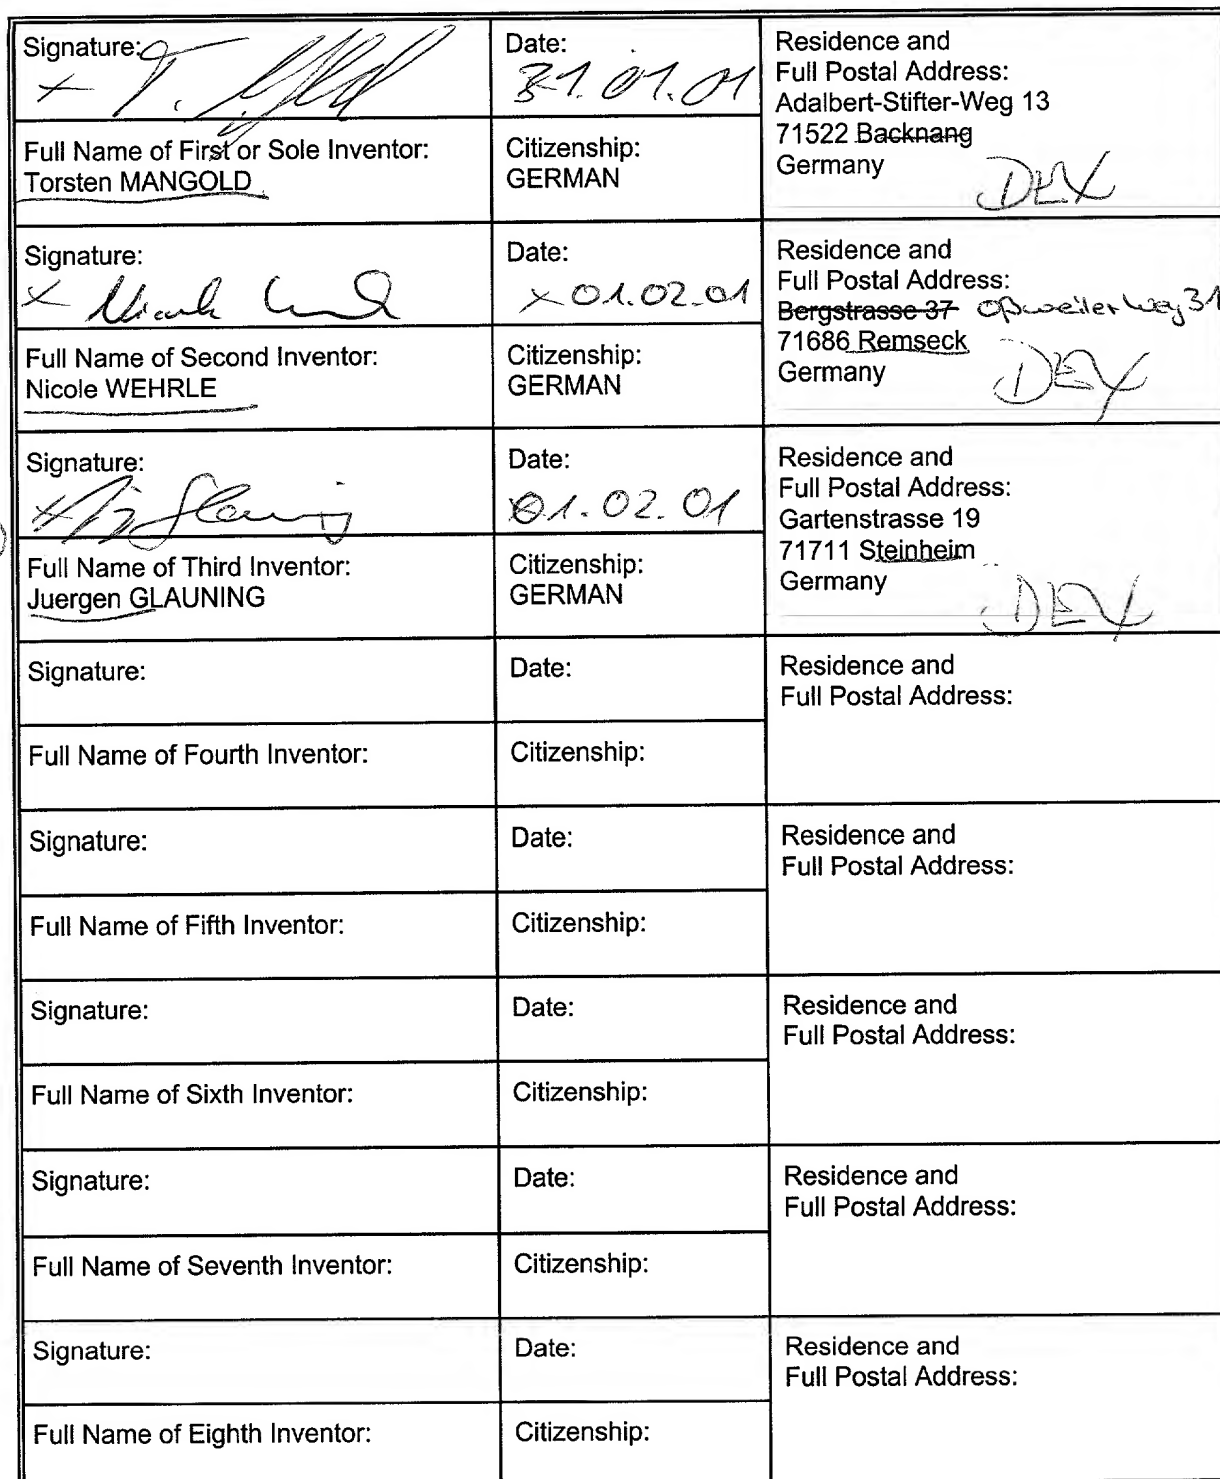 Signature:
Date:
31.01.01
Residence and
Full Postal Address:
Adalbert-Stifter-Weg 13
71522 Backnang
Germany
DEX
Full Name of First or Sole Inventor:
Torsten MANGOLD
Citizenship:
GERMAN
Signature:
x Nicole
Date:
x 01.02.01
Residence and
Full Postal Address:
Bergstrasse 37 Oßweiler Weg 31
71686 Remseck
Germany
DEX
Full Name of Second Inventor:
Nicole WEHRLE
Citizenship:
GERMAN
Signature:
x Glauning
Date:
01.02.01
Residence and
Full Postal Address:
Gartenstrasse 19
71711 Steinheim
Germany
DEX
Full Name of Third Inventor:
Juergen GLAUNING
Citizenship:
GERMAN
Signature:
Date:
Residence and
Full Postal Address:
Full Name of Fourth Inventor:
Citizenship:
Signature:
Date:
Residence and
Full Postal Address:
Full Name of Fifth Inventor:
Citizenship:
Signature:
Date:
Residence and
Full Postal Address:
Full Name of Sixth Inventor:
Citizenship:
Signature:
Date:
Residence and
Full Postal Address:
Full Name of Seventh Inventor:
Citizenship:
Signature:
Date:
Residence and
Full Postal Address:
Full Name of Eighth Inventor:
Citizenship: